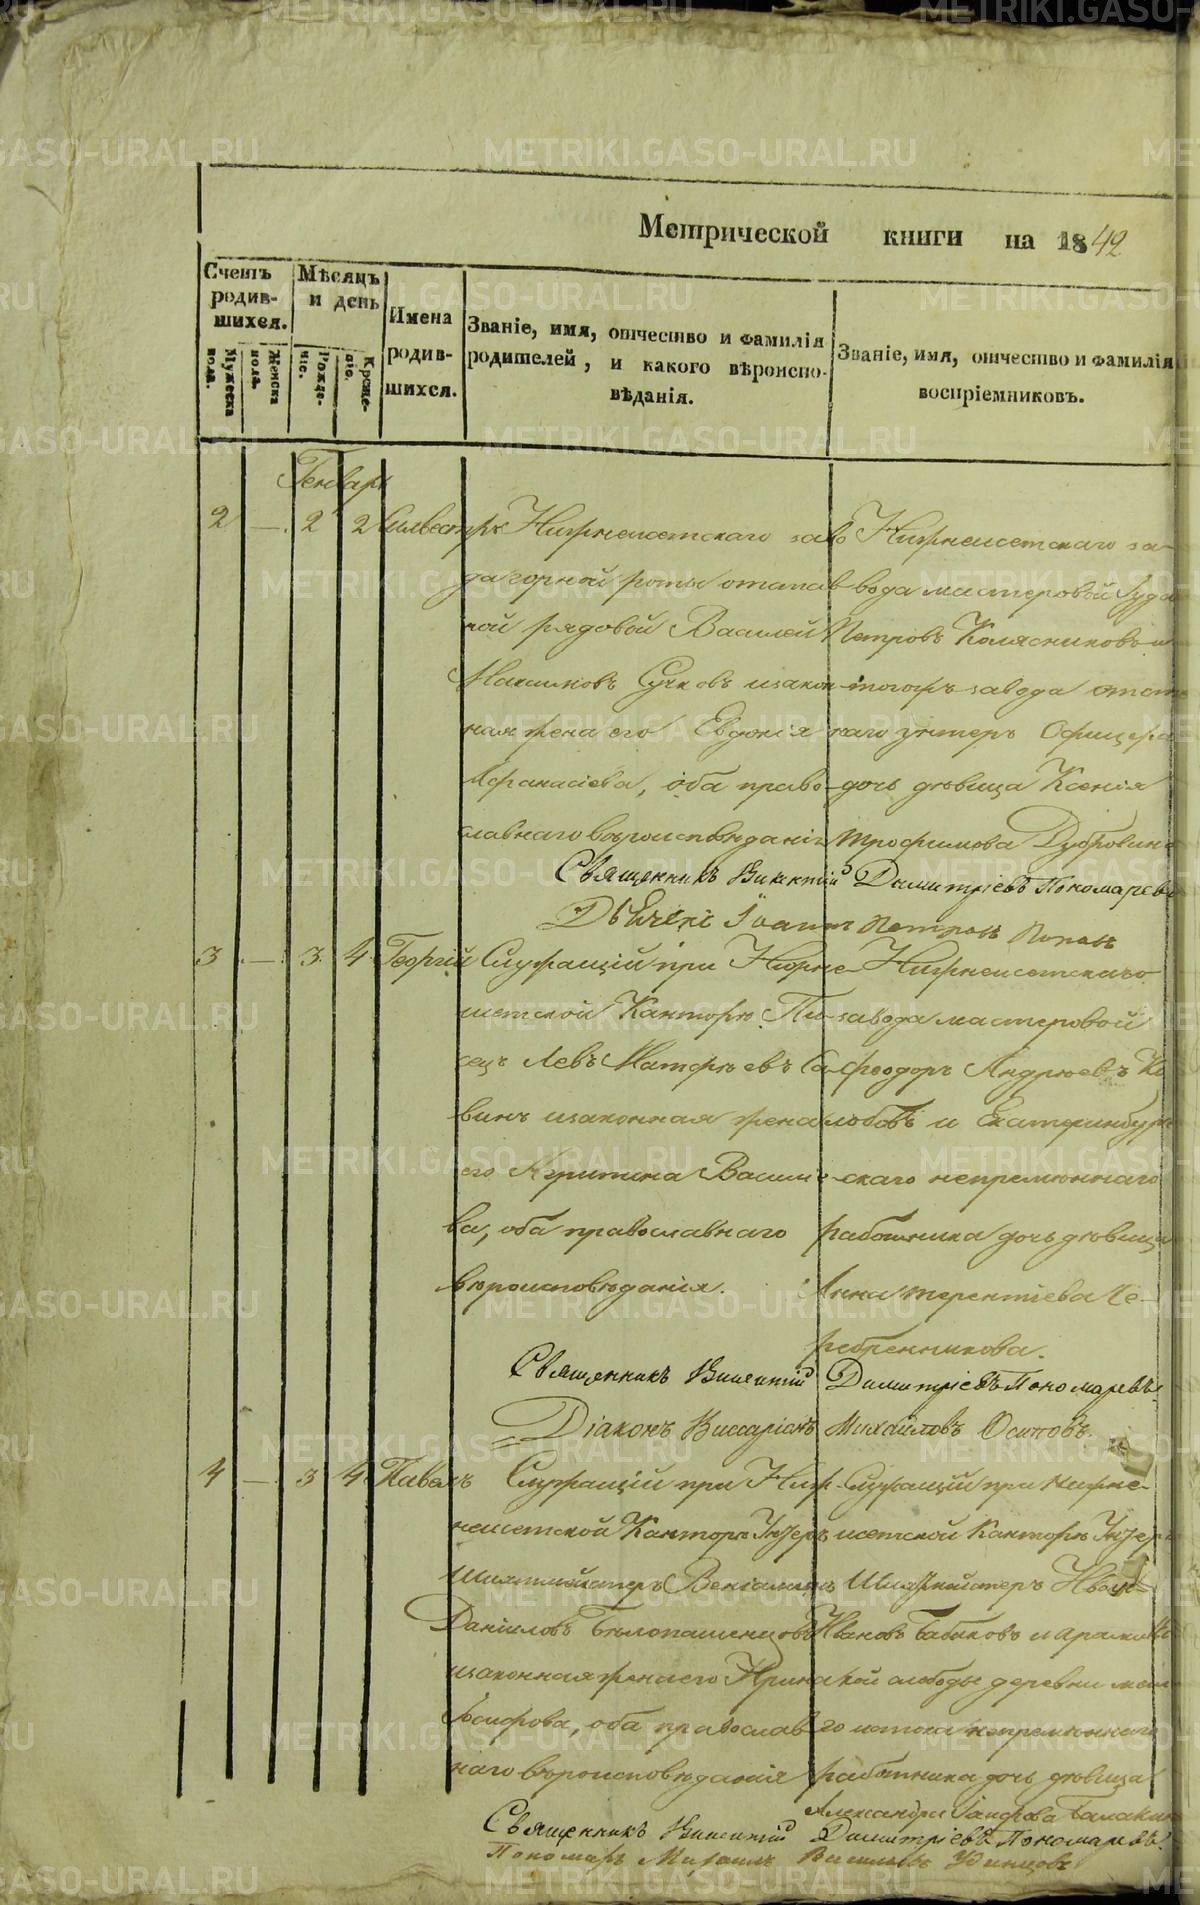 Метрической книги на 1842
Счетъ родившихся.
Мужеска пола.
Женска пола.
Мѣсяцъ и день
Рожденіе.
Крещеніе.
Имена родившихся.
Званіе, имя, отчество и фамилія
родителей, и какого вѣроиспо-
вѣданія.
Званіе, имя, отчество и фамилія
воспріемниковъ.
Генварь
2 — 2 2 Силвестръ
Нижнеисетскаго заво
да горной роты отстав
ной рядовой Василей
Максимовъ Сучковъ и закон
ная жена его Евдокія
Афанасіева, оба право-
славнаго вѣроисповѣданія
Нижнеисетскаго за-
вода мастеровой
Петровъ Колясниковъ и
тогожъ завода отст
наго унтеръ Офицера
дочь дѣвица Ксенія
Трофимова Дубровина
Священникъ Викентій Димитріевъ Пономаревъ
Іоаннъ Петровъ Поповъ
3 — 3 4 Георгій
Служащій при Нижне-
исетской Канторѣ Пи-
сецъ Левъ Матфѣевъ Са-
винъ и законная жена
его Агрипина Василіе-
ва, оба православнаго
вѣроисповѣданія.
Нижнеисетскаго
завода мастеровой
Феодоръ Андрѣевъ Ко
лобовъ и Екатеринбург
скаго непремѣннаго
работника дочь дѣвица
Анна Терентіева Че-
ребренникова.
Священникъ Викентій Димитріевъ Пономаревъ
Діаконъ Виссаріонъ Михайловъ Осиповъ.
4 — 3 4 Павелъ
Служащій при Ниж-
неисетской Канторѣ Унтеръ
Шихтмейстеръ Веніаминъ
Даніиловъ Бѣлопашенцовъ
и законная жена его Ирина
Іосифова, оба православ
наго вѣроисповѣданія
Служащій при Нижне-
исетской Канторѣ Унтеръ
Шихтмейстеръ Иванъ
Ивановъ Бабиковъ и Арамиль
ской слободы деревни
го истока непремѣннаго
работника дочь дѣвица
Александра
Священникъ Викентій Димитріевъ Пономаревъ
Пономарь Михаилъ Васильевъ Удинцовъ